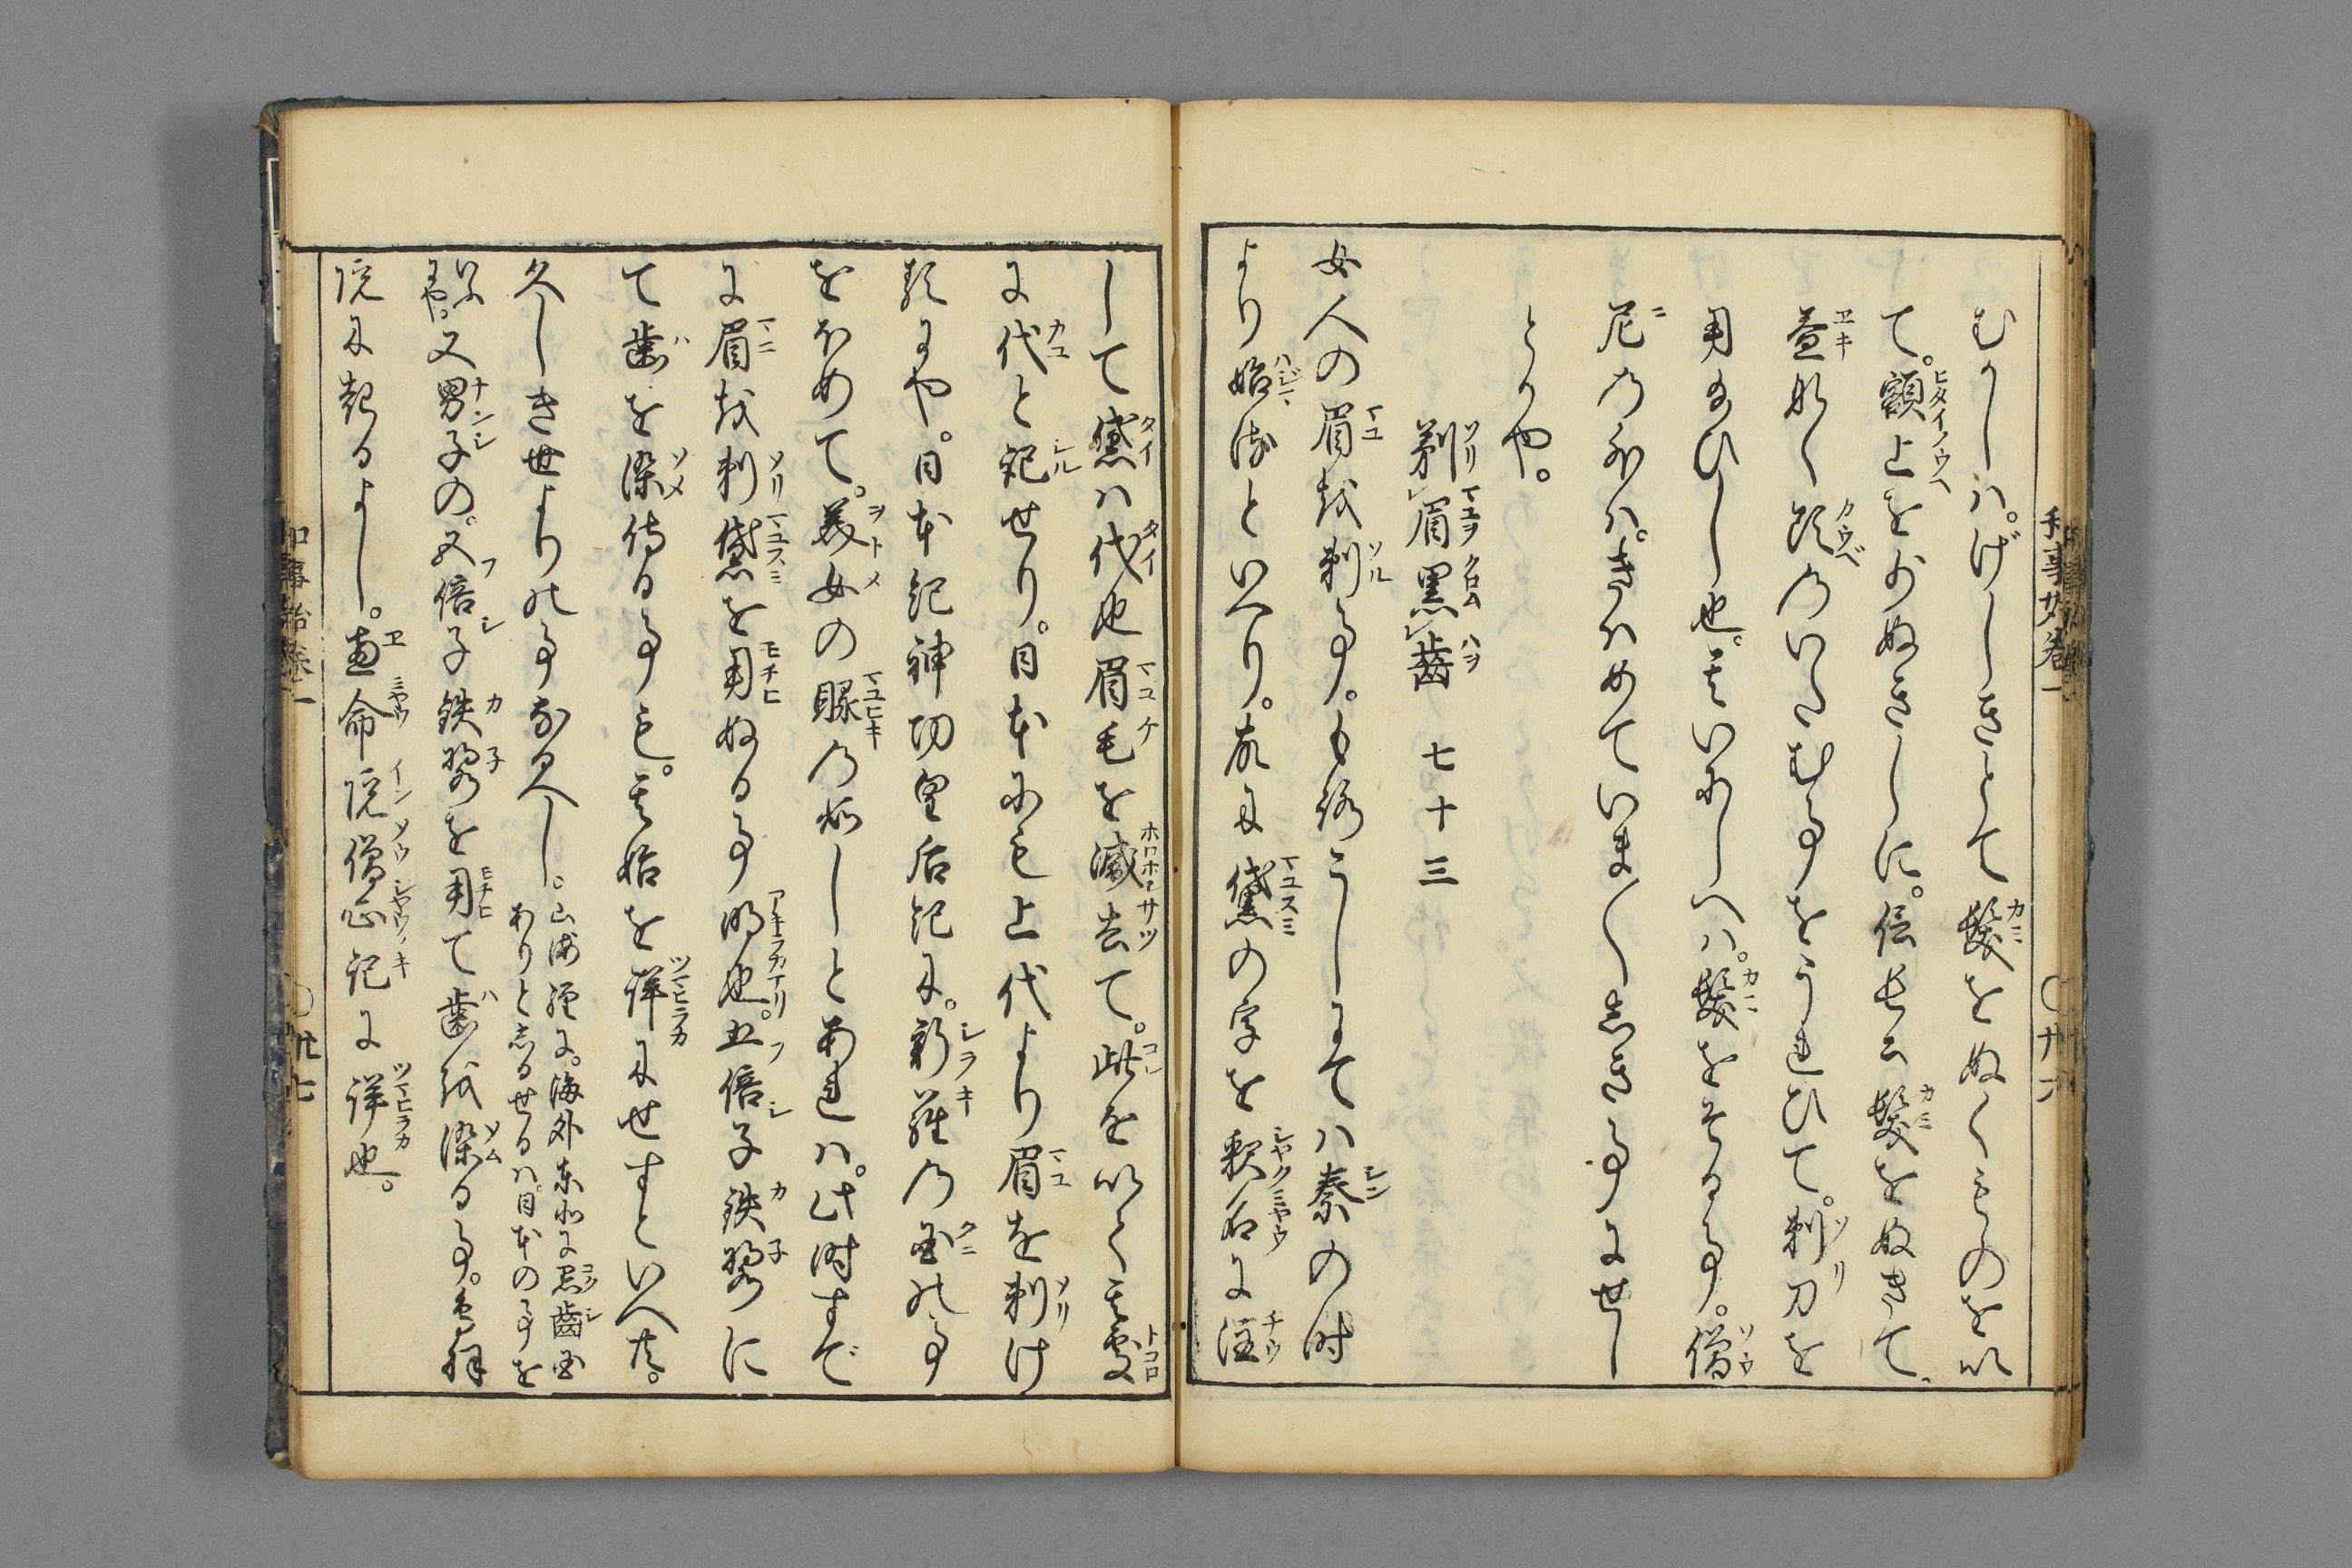 むかしハ。げしきとて髪をぬくものを以
て。額上をおぬきしに。信長公髪をぬきて。
益なく頭のいたむ事をうれひて。剃刀を
用給ひし也。其いにしヘハ。髪をそる事。僧
尼の外ハ。きハめていま〱しき事にせし
とかや。
剃眉黒歯 七十三
女人の眉越剃事。もろこしにてハ秦の時
より始游といへり。故に黛の字を釈名に注
して黛ハ代也眉毛を滅去て。此を以て其處
に代と記せり。日本にも上代より眉を剃け
類にや。日本紀神功皇后紀に。新羅の国の事
をほめて。美女の睩の如しとあれハ。此時すで
に眉越剃黛を用ぬる事明也。五倍子鉄漿に
て歯を染侍る事も。其始を詳にせずといへ共。
久しき世よりの事なるへし。山海経に。海外東北に黒歯国
ありとしるせるハ。日本の事を
いふ
にや。又男子の。五倍子鉄漿を用て歯越染る事。鳥羽
院に起るよし。恵命院僧正記に詳也。
和事始巻一
〇廿六
和事始巻一
〇廿七